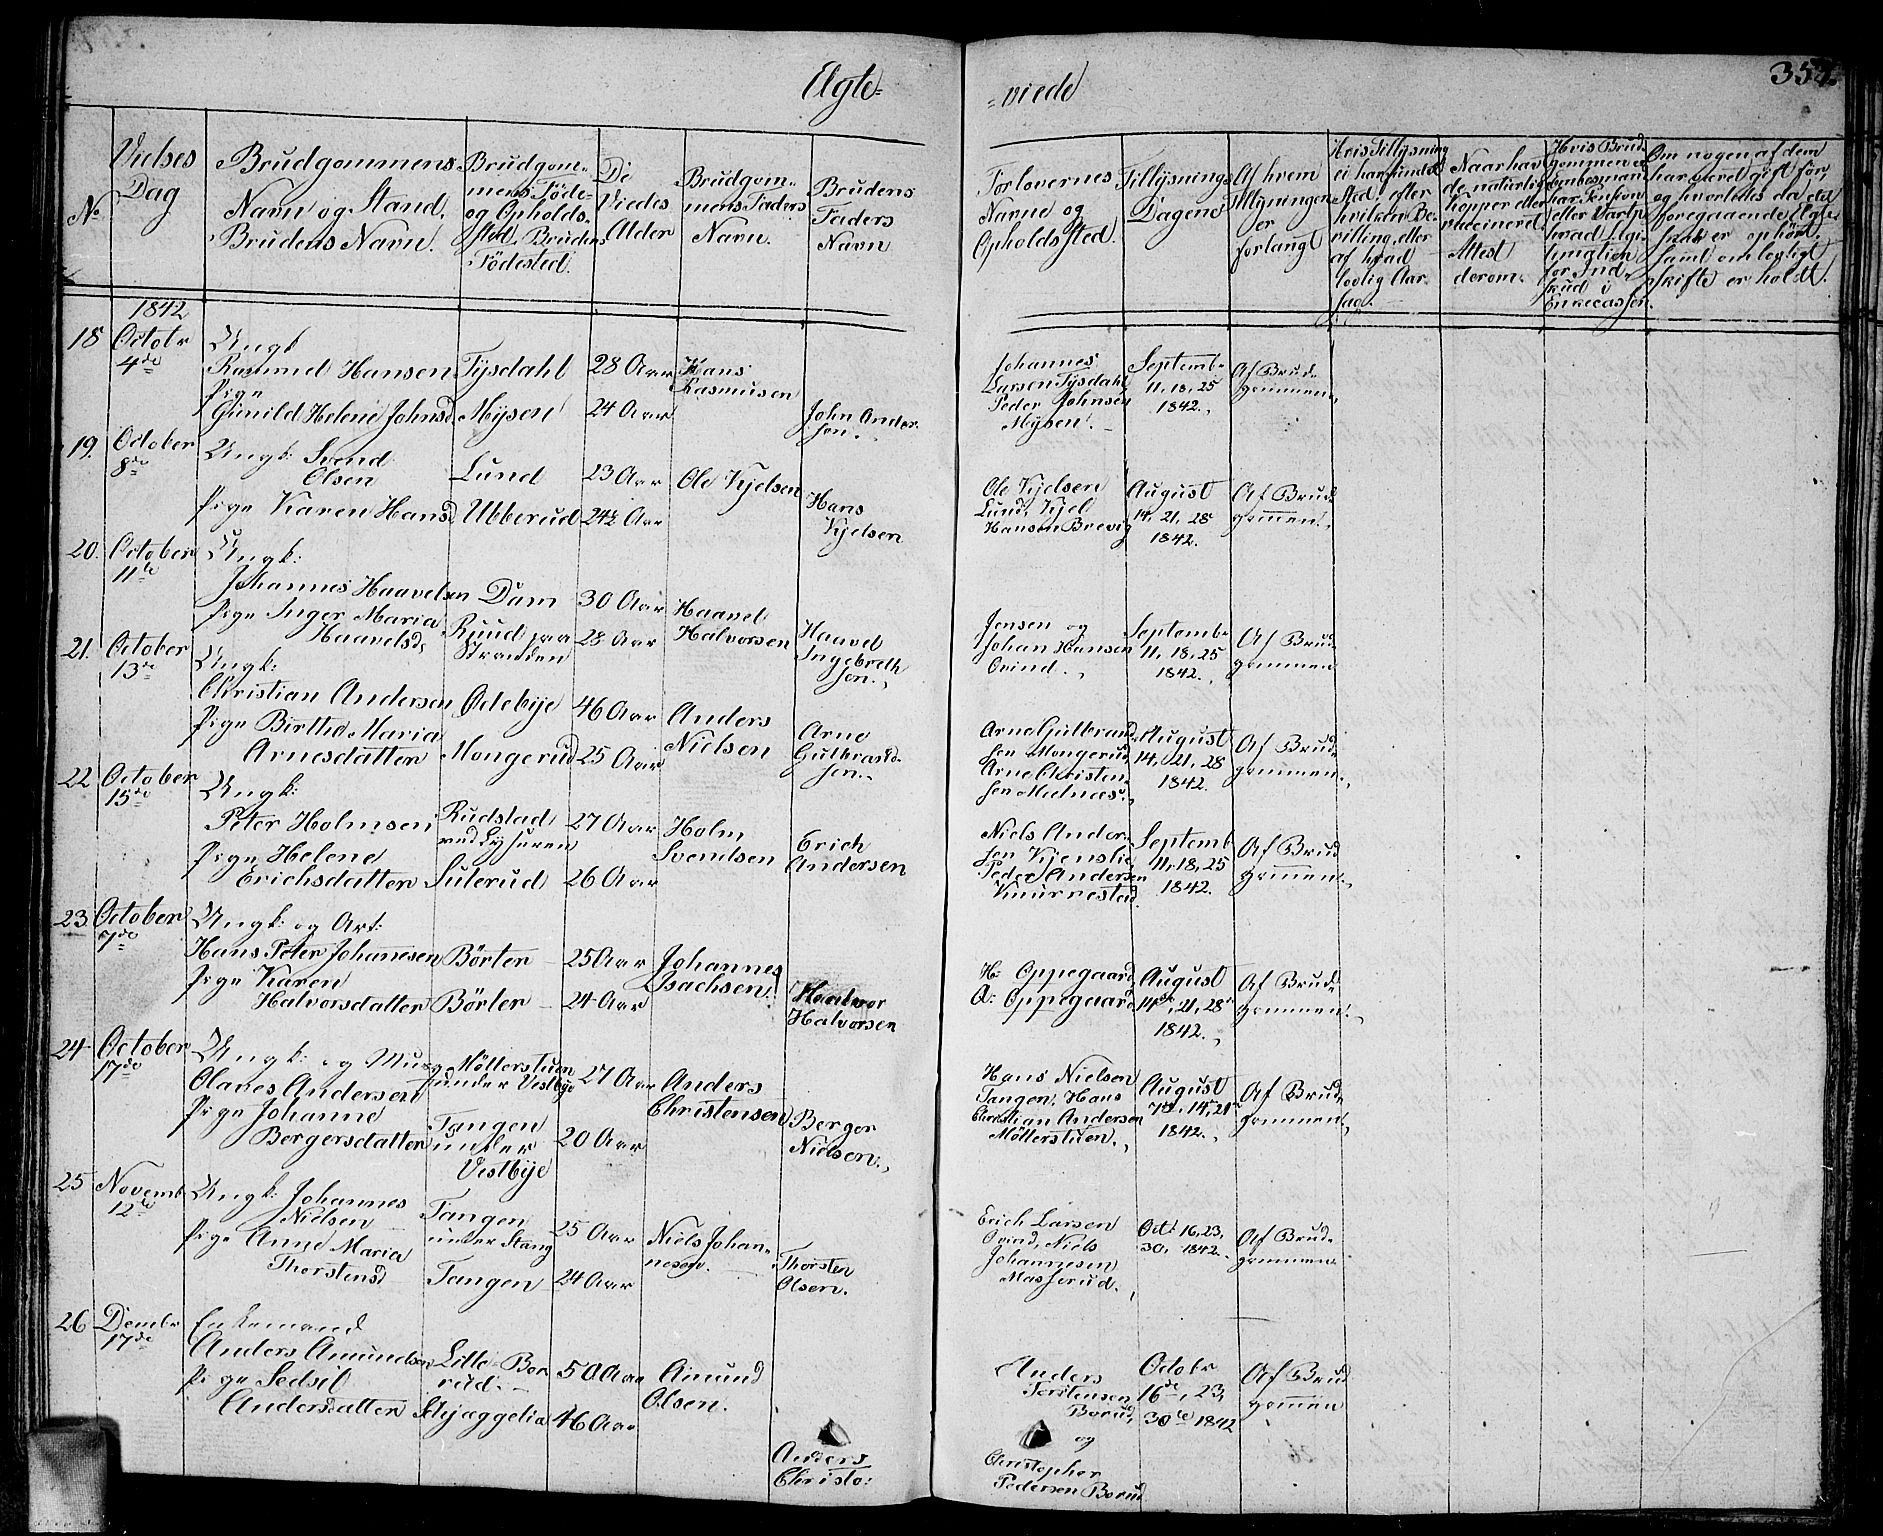 Elgte=
=viede
357.
No
Vielses
Dag
Brudgommens
Navn og Stand,
Brudens Navn.
Brudgom=
mens Føde=
og Opholds
sted, Brudens
Fødested.
De
Viedes
Alder
Brudgom=
mens Faders
Navn.
Brudens
Faders
Navn
Forlovernes
Navne og
Opholds Sted.
Tillysnings
Dagene
Af hvem
er
forlangt
Hvis Tillysning
ei har fundet
Sted, efter
hvilken Be=
villing, eller
af hvad
lovlig Aar=
sag.
Naar hav
de naturlig
Kopper eller
vaccineret
Attest
derom.
Hvis Brud
gommen er
Embedsmand
har Pension
eller Vartp
hvad Legi=
timation
for Ind=
skud i
Enkecassen.
Om nogen af dem
har været gift før,
og hvorledes da det
foregaaende Elgte
skab er ophørt,
samt om lovligt
skifte er holdt.
1842
18
Octobr
4de
Ungk
Hansen
Pige
Gunild Helene Johnsd.
Tysdahl
Mysen
28 Aar
24 Aar
Hans
Rasmusen
John Ander
sen.
Johannes
Larsen Tysdahl
Peder Johnsen
Mysen.
Septemb
11, 18, 25
1842.
Af Brud=
gommen.
19.
October
8de
Ungk: Svend
Olsen
Pige Karen Hansd
Lund
Ubberud
23 Aar
24½ Aar
Ole Kjelsen
Hans
Kjelsen
Ole Kjelsen
Lund, Kjel
Hansen Brevig
August
14, 21, 28
1842.
Af Brud=
gommen.
20.
October
11te
Ungk:
Johannes Haavelsen
Pige Inger Maria
Haavelsd,
Dam
Ruud paa
Stranden
30 Aar
28 Aar
Haavel
Halvorsen
Haavel
Ingebreth
sen.
Jensen og
Johan Hansen
Ovind.
Septemb
11, 18, 25
1842.
Af Brud
gommen
21.
October
13de
Ungk:
Christian Andersen
Pige Birthe Maria
Arnesdatter
Odebye
Mongerud
46 Aar
25 Aar
Anders
Nielsen
Arne
Gulbrand=
sen.
Arne Gulbrand
sen Mongerud
Arne Christen=
sen Melnæs.
August
14, 21, 28
1842.
Af Brud
gommen.
22
October
15de
Ungk:
Peter Holmsen
Pige Helene
Erichsdatter
Rudstad,
ved Lysuren
Sulerud
27 Aar
26 Aar
Holm
Svendsen
Erich
Andersen
Niels Ander=
sen Kjenslie
Peder Andersen
Knurrestad.
Septemb
11, 18, 25
1842.
Af Brud
gommen.
23
October
7de
Ungk: og Art:
Hans Peter Johanesen
Pige Karen
Halvorsdatter
Børter
Børter
25 Aar
24 Aar
Johannes
Isachsen.
Haalvor
Halvorsen
H: Oppegaard
A: Oppegaard
August
14de, 21, 28
1842.
Af Brud=
gommen.
24
October
17de
Ungk: og Mus
Olaves Andersen
Pige Johanne
Bergersdatter
Møllerstuen
under Vestbye
Tangen
under
Vestbye
27 Aar
20 Aar
Anders
Christensen
Berger
Nielsen.
Hans Nielsen
Tangen, Hans
Christian Andersen
Møllerstuen.
August
7de, 14, 21
1842.
Af Brud=
gommen.
25
Novemb
12te
Ungk: Johannes
Nielsen
Pige Anne Maria
Thorstensd
Tangen
under Stang
Tangen
25 Aar
24 Aar
Niels Johan=
nesen.
Thorsten
Olsen.
Erich Larsen
Ovind, Niels
Johannesen
Masserud.
Oct: 16, 23,
30, 1842.
Af Brud=
gommen
26
Dembr
17de
Enkemand
Anders Amundsen
Pige Sedsil
Andersdatter
Lille-Bor
rud.
Skjæggelia
50 Aar
46 Aar
Amund
Olsen.
Anders
Christo:
Anders
Torstensen
Borud,
og
Christopher
Pedersen Borud
Octobr
16de, 23,
30te 1842
Af Brud
gommen